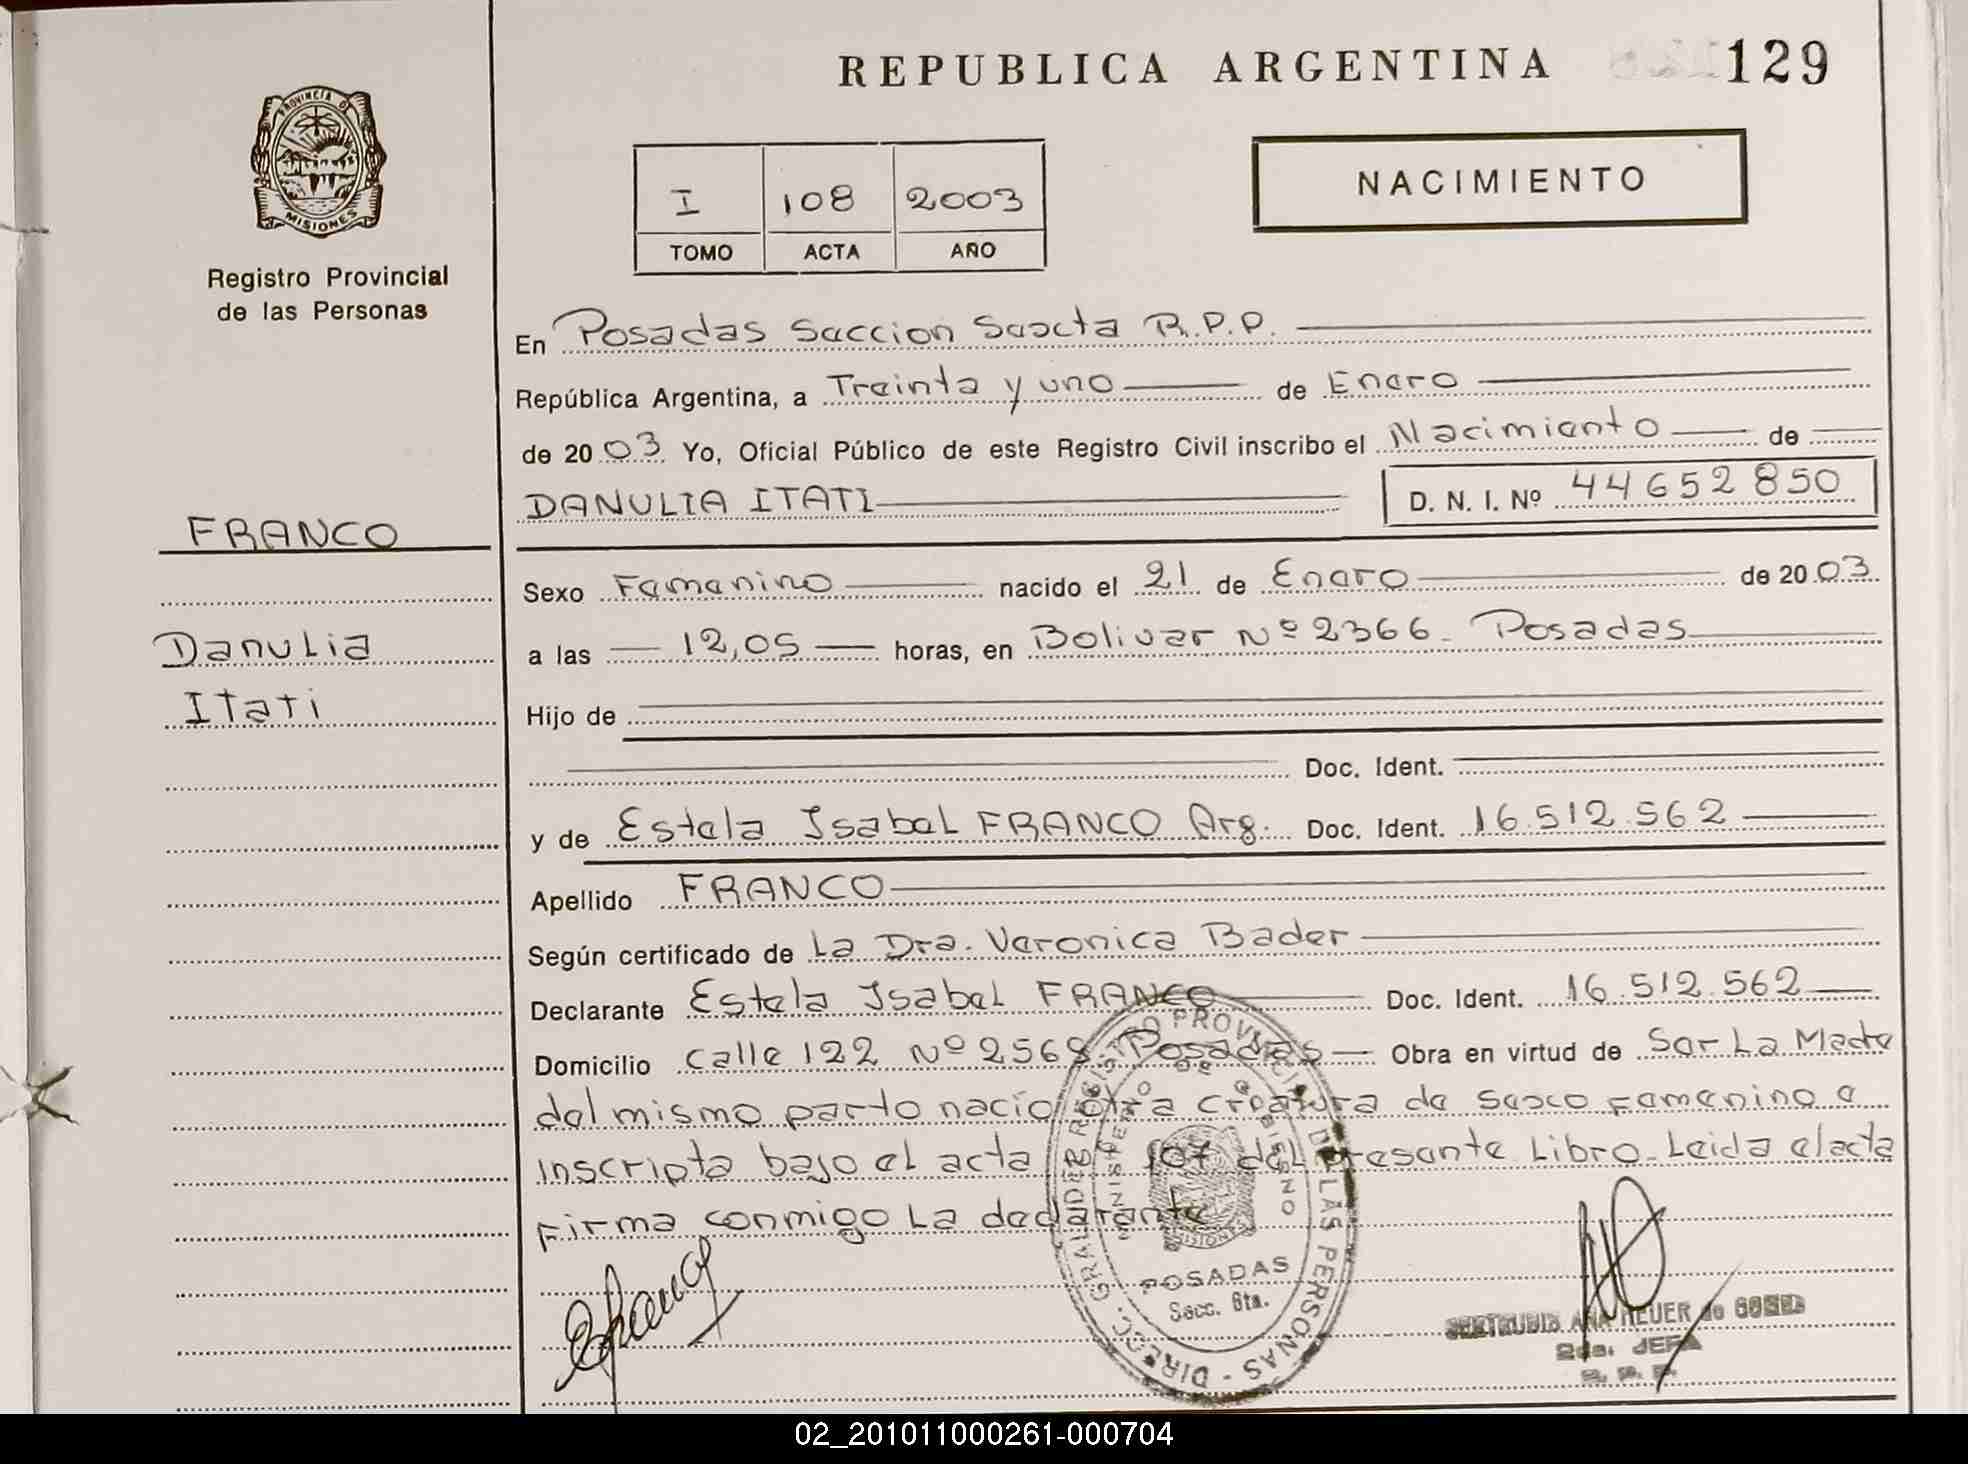 REPUBLICA ARGENTINA
129
PROVINCIA DE
MISIONES
Registro Provincial
de las Personas
I 108 2003
TOMO ACTA AÑO
NACIMIENTO
En Posadas Seccion Sexta R.P.P.
República Argentina, a Treinta y uno de Enero
de 2003 Yo, Oficial Público de este Registro Civil inscribo el Nacimiento de
DANULIA ITATI D. N. I. Nº 44652850
FRANCO
Danulia
Itati
Sexo Femenino nacido el 21 de Enero de 2003
a las 12,05 horas, en Bolivar Nº 2366 - Posadas
Hijo de
Doc. Ident.
y de Estela Isabel FRANCO Arg. Doc. Ident. 16.512.562
Apellido FRANCO
Según certificado de La Dra. Veronica Bader
Declarante Estela Isabel FRANCO Doc. Ident. 16.512.562
Domicilio calle 122 Nº 2568 Posadas Obra en virtud de Ser La Madre
del mismo parto nacio otra creatura de sexo femenino e
inscripta bajo el acta 107 del presente Libro - Leida el acta
firma conmigo La declarante
DIREC. GRAL DE REGISTRO PROVINCIAL DE LAS PERSONAS
MINISTERIO DE GOBIERNO
MISIONES
POSADAS
Secc. 6ta.
GERTRUDIS ANA HEUER de GOMEZ
2da. JEFA
R. P. P.
02_201011000261-000704